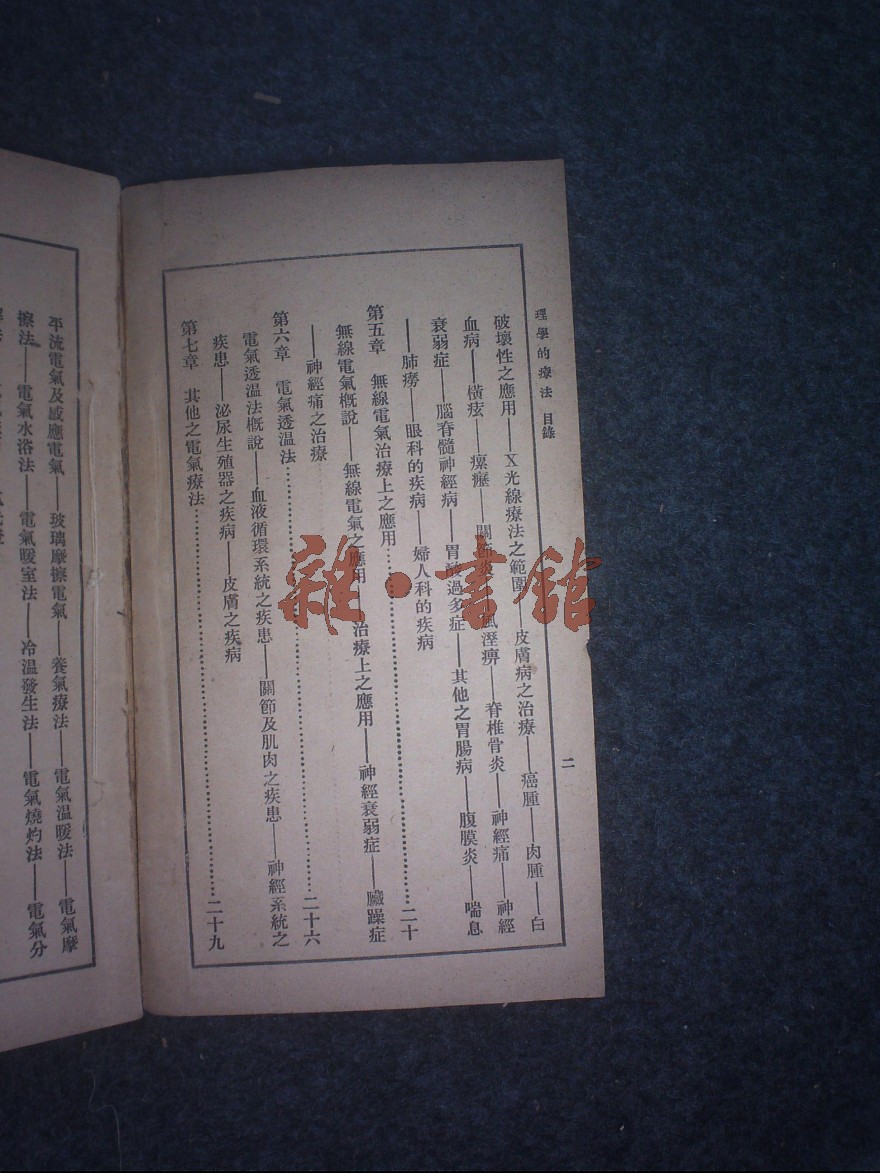 理學的療法 目錄
二
破壞性之應用——X光線療法之範圍——皮膚病之治療——癌腫——肉腫——白
血病——橫痃——瘰癧——關節炎——風溼痹——脊椎骨炎——神經痛——神經
衰弱症——腦脊髓神經病——胃酸過多症——其他之胃腸病——腹膜炎——喘息
——肺癆——眼科的疾病——婦人科的疾病
第五章 無線電氣治療上之應用……二十
無線電氣概說——無線電氣之應用——治療上之應用——神經衰弱症——臟躁症
——神經痛之治療
第六章 電氣透溫法……二十六
電氣透溫法概說——血液循環系統之疾患——關節及肌肉之疾患——神經系統之
疾患——泌尿生殖器之疾病——皮膚之疾病
第七章 其他之電氣療法……二十九
平流電氣及感應電氣——玻璃摩擦電氣——養氣療法——電氣溫暖法——電氣摩
擦法——電氣水浴法——電氣暖室法——冷溫發生法——電氣燒灼法——電氣分
雜·書館